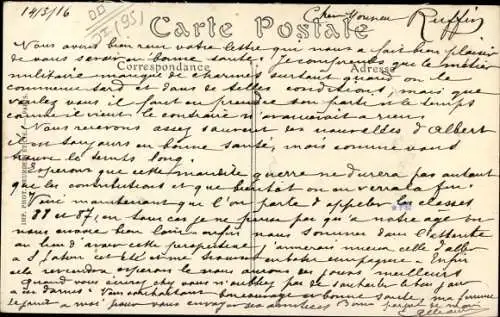 14/3/16
Cher Monsieur Ruffin
Carte Postale
Correspondance
Adresse
Nous avons bien reçu votre lettre qui nous a fait bien plaisir
de vous savoir en bonne santé. Je comprends que le métier
militaire manque de charmes surtout quand on le
commence tard et dans de telles conditions, mais que
voulez vous il faut en prendre son parti et le temps
comme il vient le contraire n'avancerait à rien.
Nous recevons assez souvent des nouvelles d'Albert
il est toujours en bonne santé, mais comme vous
trouve le temps long.
Espérons que cette maudite guerre ne durera pas autant
que les contributions et que bientôt on en verra la fin.
Voici maintenant que l'on parle d'appeler les classes
88 et 87, en tous cas je ne pense pas qu'à notre âge on
nous envoie bien loin enfin nous sommes dans l'attente
au lieu d'avoir cette perspective j'aimerais mieux celle d'aller
à St et été et me trouver en bonne compagnie. Enfin
cela reviendra espérons le nous aurons des jours meilleurs
Quand vous écrivez chez vous n'oubliez pas de souhaiter le bonjour
Vous souhaitant bon courage et bonne santé, ma femme
se joint à moi pour vous envoyer ses amitiés Bonne poignée de main